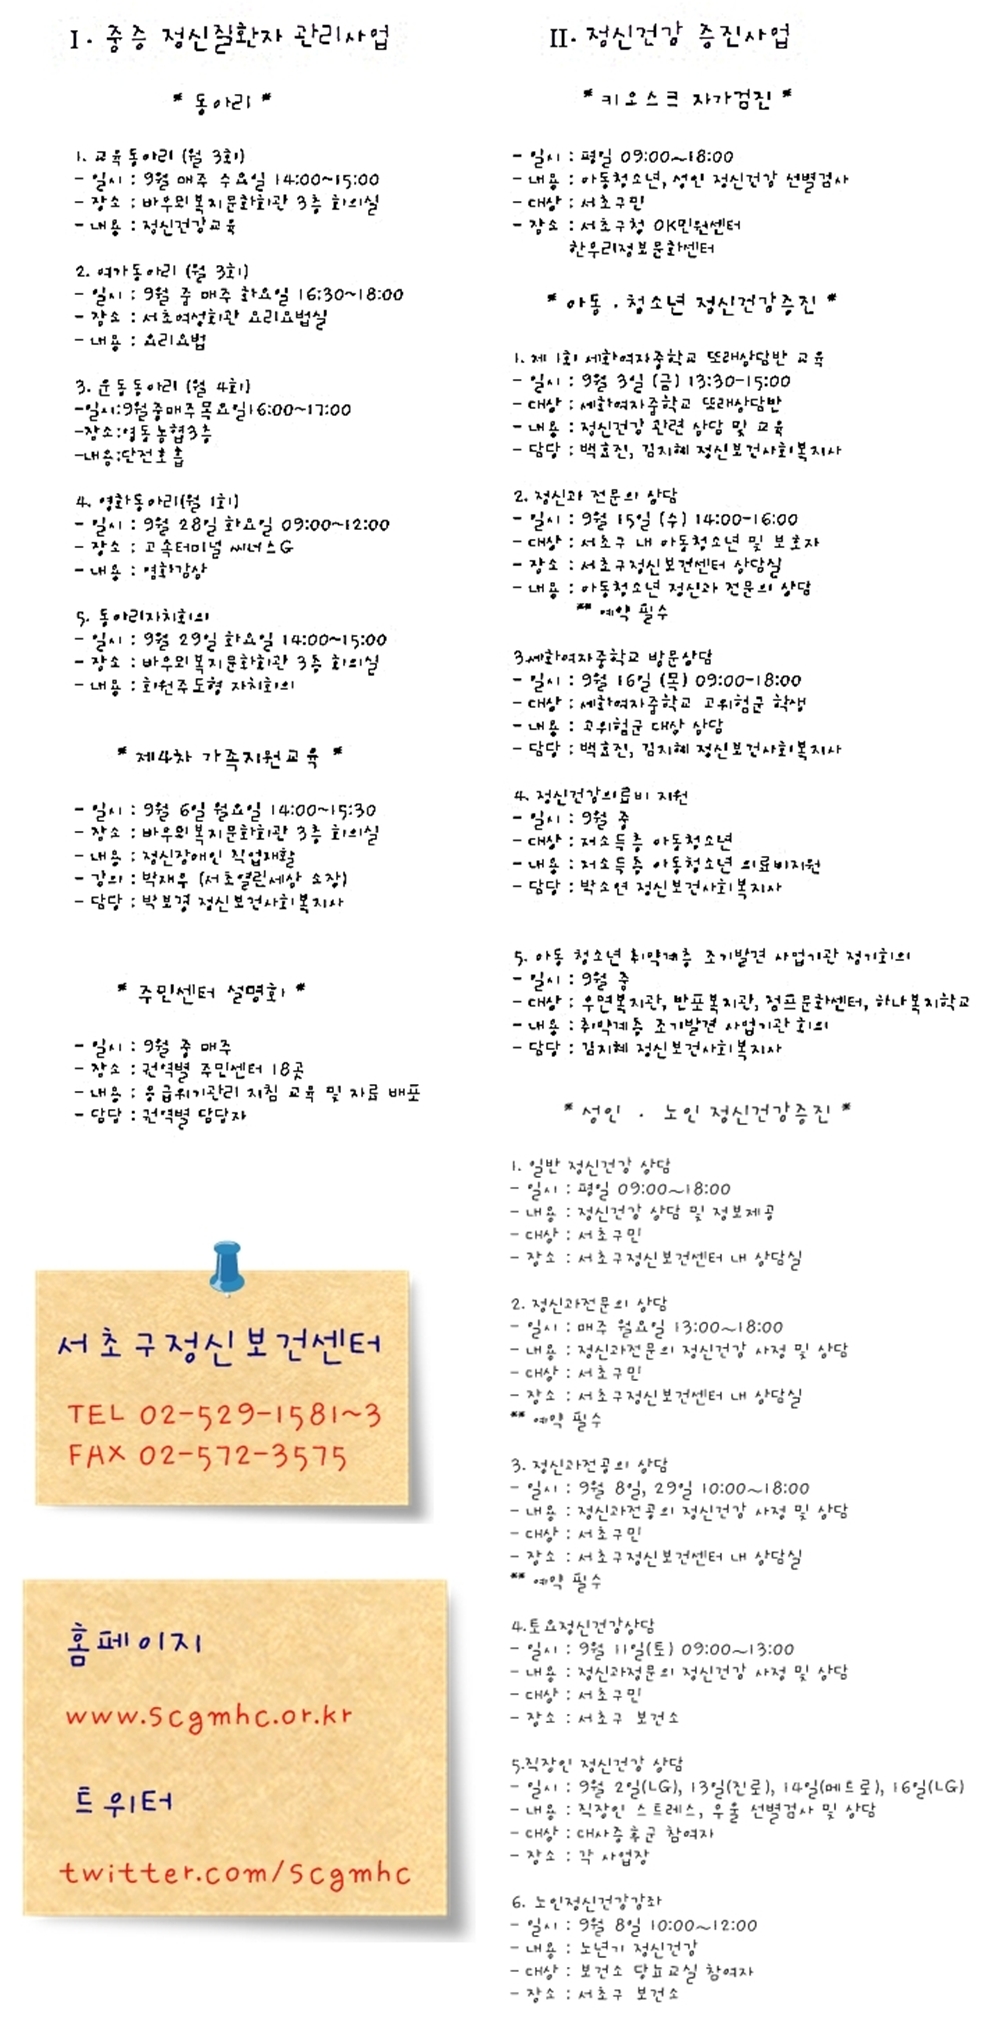 I. 중증 정신질환자 관리사업
* 동아리 *
1. 교육동아리 (월 3회)
- 일시 : 9월 매주 수요일 14:00~15:00
- 장소 : 바우뫼복지문화회관 3층 회의실
- 내용 : 정신건강교육
2. 여가동아리 (월 3회)
- 일시 : 9월 중 매주 화요일 16:30~18:00
- 장소 : 서초여성회관 요리요법실
- 내용 : 요리요법
3. 운동동아리 (월 4회)
-일시:9월중매주목요일16:00~17:00
-장소:영동농협3층
-내용:단전호흡
4. 영화동아리(월 1회)
- 일시 : 9월 28일 화요일 09:00~12:00
- 장소 : 고속터미널 씨너스G
- 내용 : 영화감상
5. 동아리자치회의
- 일시 : 9월 29일 화요일 14:00~15:00
- 장소 : 바우뫼복지문화회관 3층 회의실
- 내용 : 회원주도형 자치회의
* 제4차 가족지원교육 *
- 일시 : 9월 6일 월요일 14:00~15:30
- 장소 : 바우뫼복지문화회관 3층 회의실
- 내용 : 정신장애인 직업재활
- 강의 : 박재우 (서초열린세상 소장)
- 담당 : 박보경 정신보건사회복지사
* 주민센터 설명회 *
- 일시 : 9월 중 매주
- 장소 : 권역별 주민센터 18곳
- 내용 : 응급위기관리 지침 교육 및 자료 배포
- 담당 : 권역별 담당자
서초구정신보건센터
TEL 02-529-1581~3
FAX 02-572-3575
홈페이지
www.scgmhc.or.kr
트위터
twitter.com/scgmhc
II. 정신건강 증진사업
* 키오스크 자가검진 *
- 일시 : 평일 09:00~18:00
- 내용 : 아동청소년, 성인 정신건강 선별검사
- 대상 : 서초구민
- 장소 : 서초구청 OK민원센터
한우리정보문화센터
* 아동 · 청소년 정신건강증진 *
1. 제 1회 세화여자중학교 또래상담반 교육
- 일시 : 9월 3일 (금) 13:30-15:00
- 대상 : 세화여자중학교 또래상담반
- 내용 : 정신건강 관련 상담 및 교육
- 담당 : 백효진, 김지혜 정신보건사회복지사
2. 정신과 전문의 상담
- 일시 : 9월 15일 (수) 14:00-16:00
- 대상 : 서초구 내 아동청소년 및 보호자
- 장소 : 서초구정신보건센터 상담실
- 내용 : 아동청소년 정신과 전문의 상담
** 예약 필수
3.세화여자중학교 방문상담
- 일시 : 9월 16일 (목) 09:00-18:00
- 대상 : 세화여자중학교 고위험군 학생
- 내용 : 고위험군 대상 상담
- 담당 : 백효진, 김지혜 정신보건사회복지사
4. 정신건강의료비 지원
- 일시 : 9월 중
- 대상 : 저소득층 아동청소년
- 내용 : 저소득층 아동청소년 의료비지원
- 담당 : 박소연 정신보건사회복지사
5. 아동 청소년 취약계층 조기발견 사업기관 정기회의
- 일시 : 9월 중
- 대상 : 우면복지관, 반포복지관, 점프문화센터, 하나복지학교
- 내용 : 취약계층 조기발견 사업기관 회의
- 담당 : 김지혜 정신보건사회복지사
* 성인 · 노인 정신건강증진 *
1. 일반 정신건강 상담
- 일시 : 평일 09:00~18:00
- 내용 : 정신건강 상담 및 정보제공
- 대상 : 서초구민
- 장소 : 서초구정신보건센터 내 상담실
2. 정신과전문의 상담
- 일시 : 매주 월요일 13:00~18:00
- 내용 : 정신과전문의 정신건강 사정 및 상담
- 대상 : 서초구민
- 장소 : 서초구정신보건센터 내 상담실
** 예약 필수
3. 정신과전공의 상담
- 일시 : 9월 8일, 29일 10:00~18:00
- 내용 : 정신과전공의 정신건강 사정 및 상담
- 대상 : 서초구민
- 장소 : 서초구정신보건센터 내 상담실
** 예약 필수
4.토요정신건강상담
- 일시 : 9월 11일(토) 09:00~13:00
- 내용 : 정신과정문의 정신건강 사정 및 상담
- 대상 : 서초구민
- 장소 : 서초구 보건소
5.직장인 정신건강 상담
- 일시 : 9월 2일(LG), 13일(진로), 14일(메트로), 16일(LG)
- 내용 : 직장인 스트레스, 우울 선별검사 및 상담
- 대상 : 대사증후군 참여자
- 장소 : 각 사업장
6. 노인정신건강강좌
- 일시 : 9월 8일 10:00~12:00
- 내용 : 노년기 정신건강
- 대상 : 보건소 당뇨교실 참여자
- 장소 : 서초구 보건소